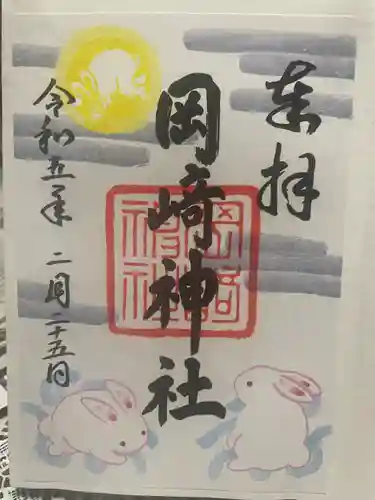 奉拝
岡崎神社
岡崎神社
令和五年 二月二十五日